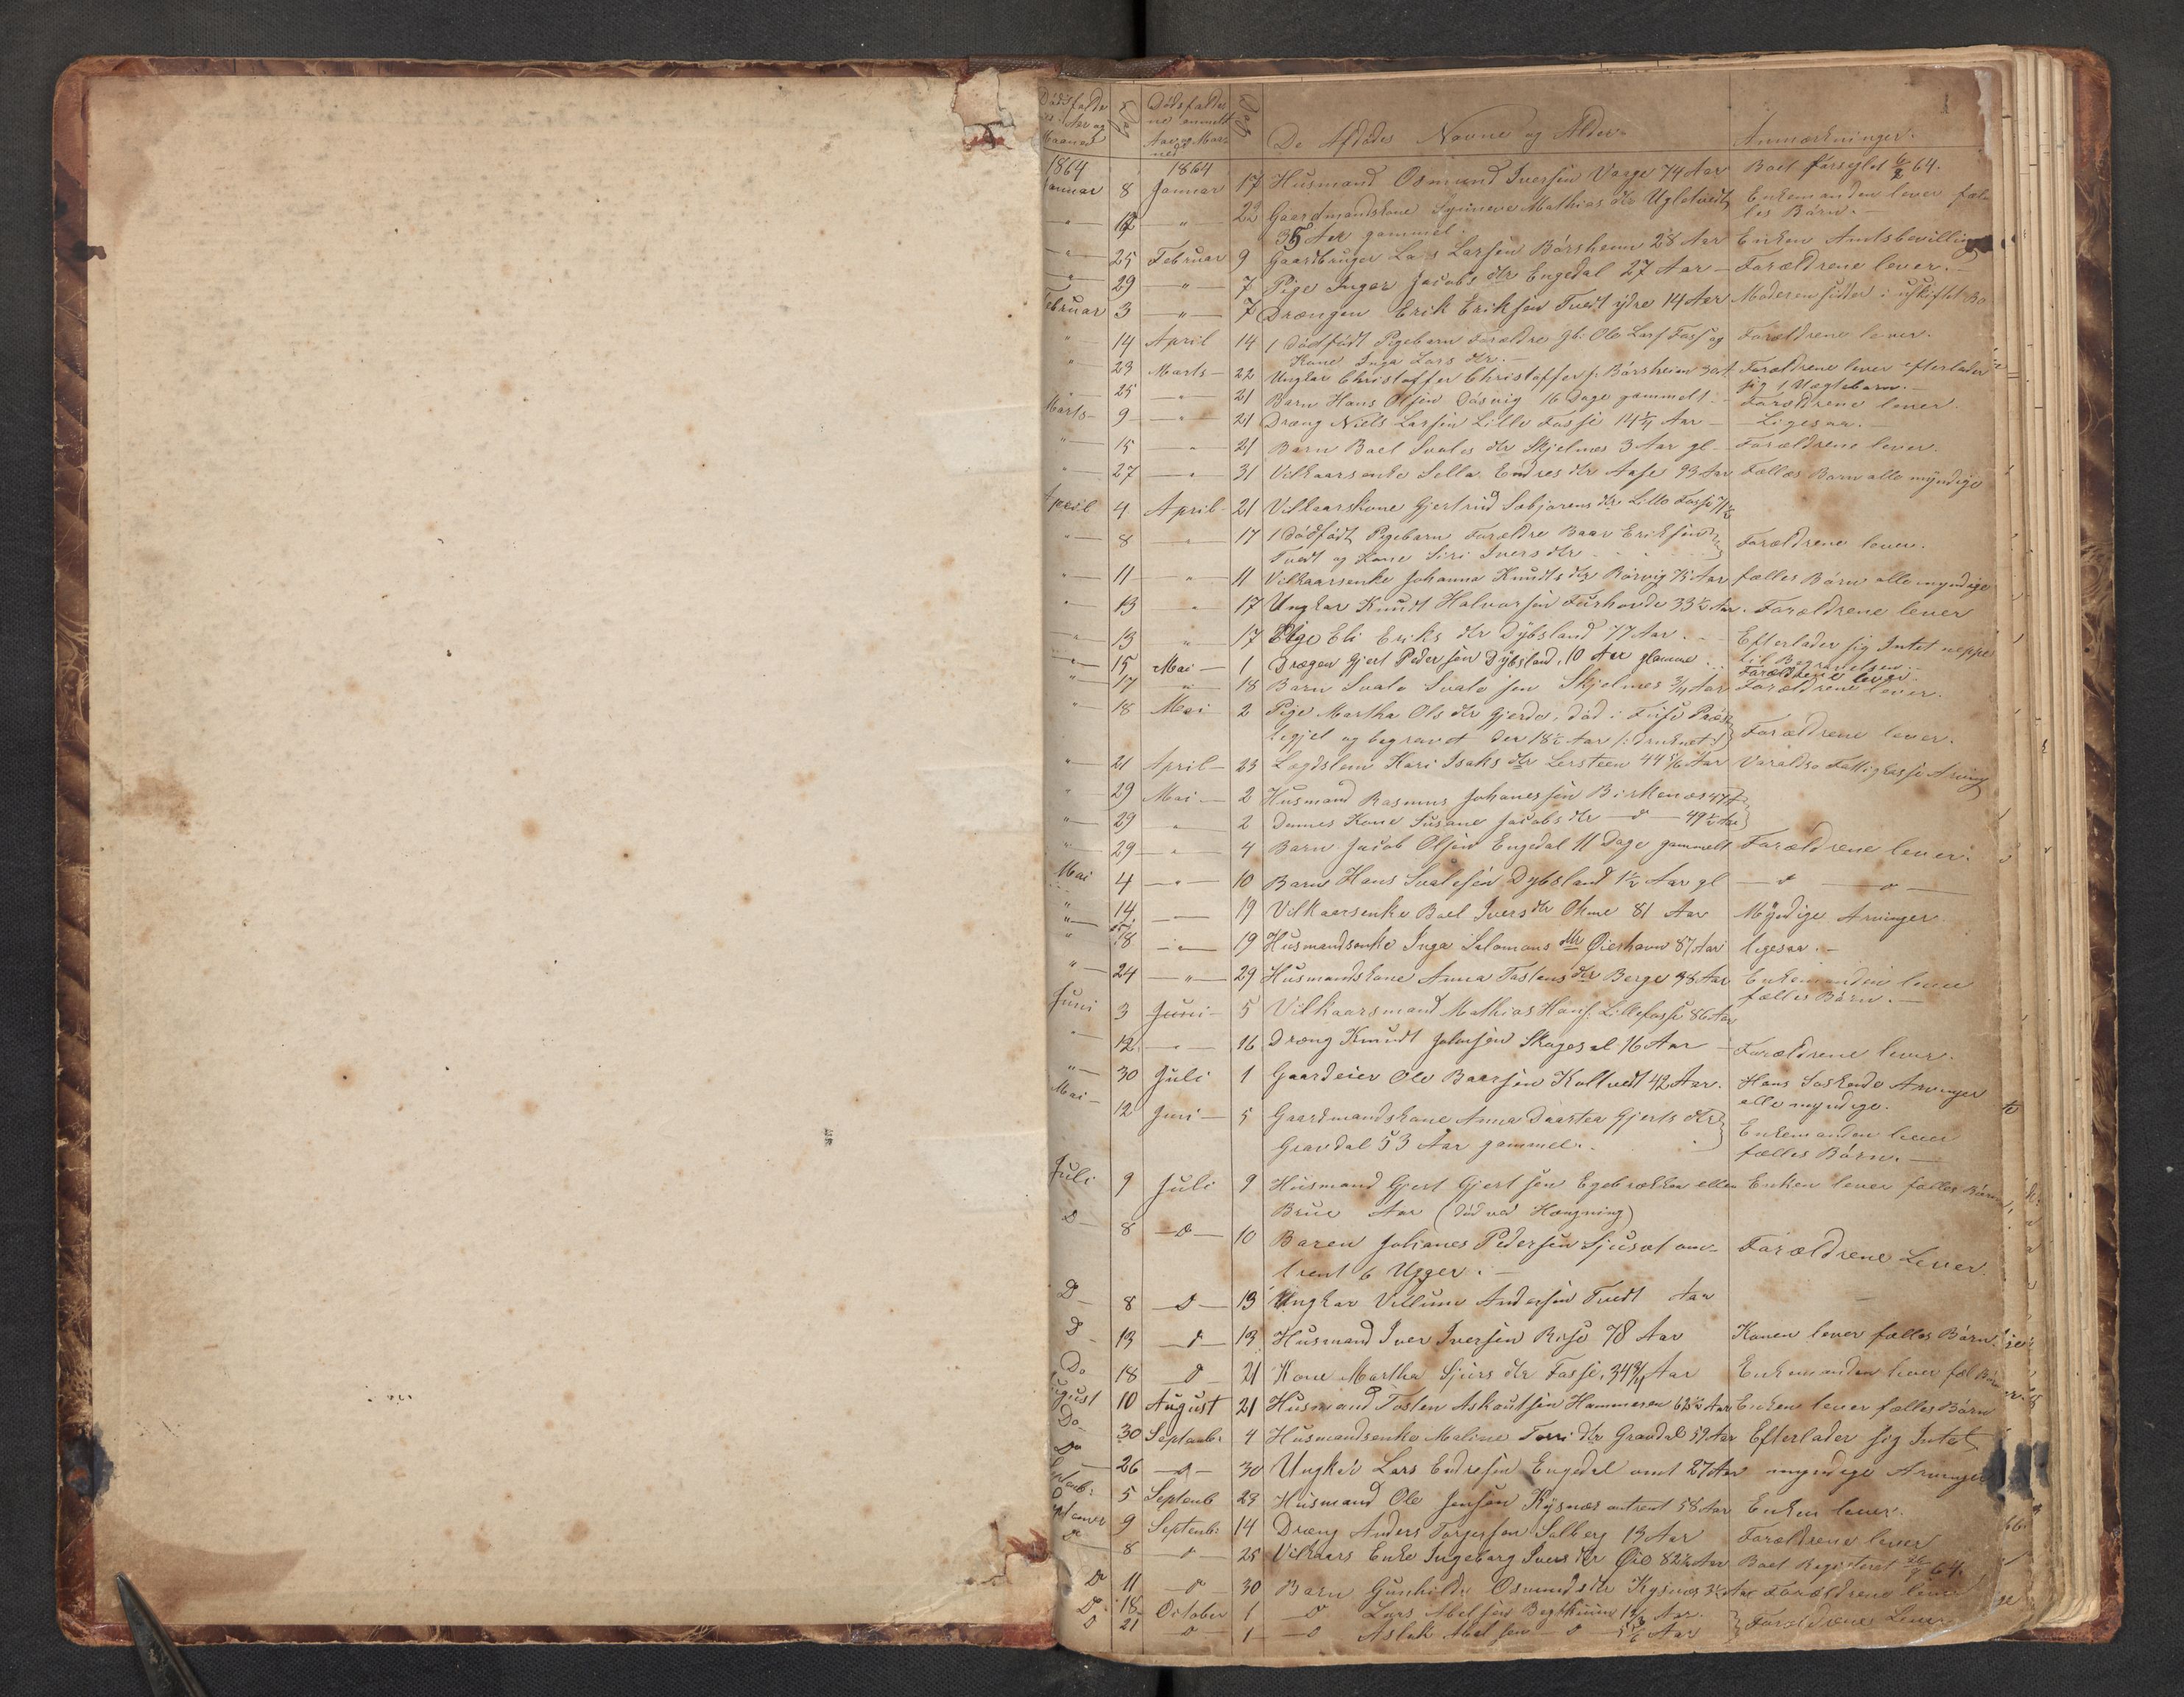 1
Dødsfalde
Aar og
Maaned
Dag
Dødsfaldene anmeldt
Aar og Maaned
Dag
De Afdødes Navne og Alder
Anmærkninger.
1864 1864
Januar 8 Januar 17 Husmand Osmund Iversen Vaage 74 Aar Boet forseglet 6/2 64.
" 12 " 22 Gaardmandskone Synneve Mathias dtr Ugletvedt Enkemanden lever fæl-
35 Aar gammel. les Børn.
" 25 Februar 9 Gaardbruger Lars Larsen Børsheim 28 Aar Enken Amtsbevilling
" 29 " 7 Pige Inger Jacobs dtr Engedal 27 Aar Forældrene lever.
Februar 3 " 7 Drængen Erik Eriksen Tvedt ydre 14 Aar Moderen sidder i uskiftet Bo
" 14 April 14 1 dødfødt Pigebarn Forældre Gb. Ole Lars Fosse og Forældrene lever.
Kone Inga Lars dtr.
" 23 Marts 22 Ungkar Christoffer Christoffers: Børsheim Forældrene lever efterlader
sig 1 Uægtebarn.
" 25 " 21 Barn Hans Olsen Døsvig 16 Dage gammelt Forældrene lever.
Marts 9 " 21 Dræng Niels Larsen Lille Fosse 14 1/4 Aar Ligesaa.
" 15 " 21 Barn Boel Svales dtr Skjelnes 3 Aar gl. Forældrene lever.
" 27 " 31 Vilkaarsenke Sella Endres dtr Aase 93 Aar Fælles Børn alle myndige
April 4 April 21 Vilkaarskone Gjertrud Sebjørens dtr Lille Fosse 71 1/2
" 8 " 17 1 dødfødt Pigebarn Forældre Baar Eriksen Forældrene lever.
Tvedt og Kone Siri Ivers dtr
" 11 " 11 Vilkaarsenke Johanna Knudts dtr Børvig 75 Aar fælles Børn alle myndige
" 13 " 17 Ungkar Knudt Halvorsen Furhovde 33 1/2 Aar. Forældrene lever
" 13 " 17 Pige Eli Eriks dtr Dybsland 77 Aar. Efterlader sig Intet neppe
til Begravelsen.
" 15 Mai 1 Drægen Gjert Pedersen Dybsland, 10 Aar glamme Forældrene lever
" 17 " 18 Barn Svale Svalesen Skjelnes 3/4 Aar Forældrene lever.
" 18 Mai 2 Pige Martha Ols dtr Gjerde, død i Fuse Præs-
tegjel og begravet der 18 1/2 Aar (: druknet :) Forældrene lever.
" 21 April 23 Lægdslem Kari Isaks dtr Lersteen 44 5/6 Aar Varaldsø Fattigkasse Arving
" 29 Mai 2 Husmand Rasmus Johanessen Birkenæs 47 A
" 29 " 2 Dennes Kone Susane Jacobs dtr d 49 1/2 Aar
" 29 " 4 Barn Jacob Olsen Engedal 11 Dage gammelt Forældrene lever.
Mai 4 " 10 Barn Hans Svalesen Dybsland 1 1/2 Aar gl d d
" 14 " 19 Vilkaarsenke Boel Ivers dtr Ohme 81 Aar Myndige Arvinger
" 18 " 19 Husmandsenke Inga Salomons dtr Øiershavn 87 Aar ligesaa.
" 24 " 29 Husmandskone Anna Tostens dtr Berge 38 Aar Enkemanden lever
fælles Børn.
Juni 3 Juni 5 Vilkaarsmand Mathias Hans: Lillefosse 86 Aar
" 12 " 16 Dræng Knudt Johnsen Skogesel 16 Aar Forældrene lever.
" 30 Juli 1 Gaardeier Ole Baarsen Koltvedt 42 Aar. Hans Søskende Arvinger
alle myndige.
Mai 12 Juni 5 Gaardmandskone Anna Daartea Gjerts dtr Enkemanden lever
Gravdal 53 Aar gammel. fælles Børn.
Juli 9 Juli 9 Husmand Gjert Gjertsen Egebrekken eller Enken lever fælles Børn
Brue Aar (død ved Hængning)
D 8 D 10 Baren Johanes Pedersen Sjusæt om- Forældrene Lever.
trent 6 Ugger.
D 8 D 13 Ungkar Villum Andersen Tvedt Aar
D 13 D 13 Husmand Iver Iversen Riise 78 Aar Konen lever fælles Børn.
Do 18 D 21 Kone Martha Sjurs dtr Fosse, 34 3/4 Aar Enkemanden lever fæl Børn
August 10 August 21 Husmand Tosten Askoutsen Hammeren 62 1/2 Aar Enken lever fælles Børn
Do 30 Septemb: 4 Husmandsenke Maline Torri dtr Gravdal 59 Aar Efterlader sig Intet
Do 26 D 30 Ungkar Lars Endresen Engedal omt 27 Aar myndige Arvinger
Septemb: 5 Septemb 23 Husmand Ole Jensen Kysnæs omtrent 58 Aar Enken lever.
September 9 Septemb: 14 Dræng Anders Torgersen Solberg 13 Aar Forældrene lever
D 8 D 25 Vilkaars Enke Ingeborg Ivers dtr Øie 82 1/2 Aar Boet Registeret 64.
D 11 D 30 Barn Gunhilde Osmunds dtr Kysnæs 3 1/2 Aar Forældrene lever
D 18 October 1 D Lars Abelsen Aar.
D 21 D 1 D Aslak Abelsen D Aar Forældrene Lever